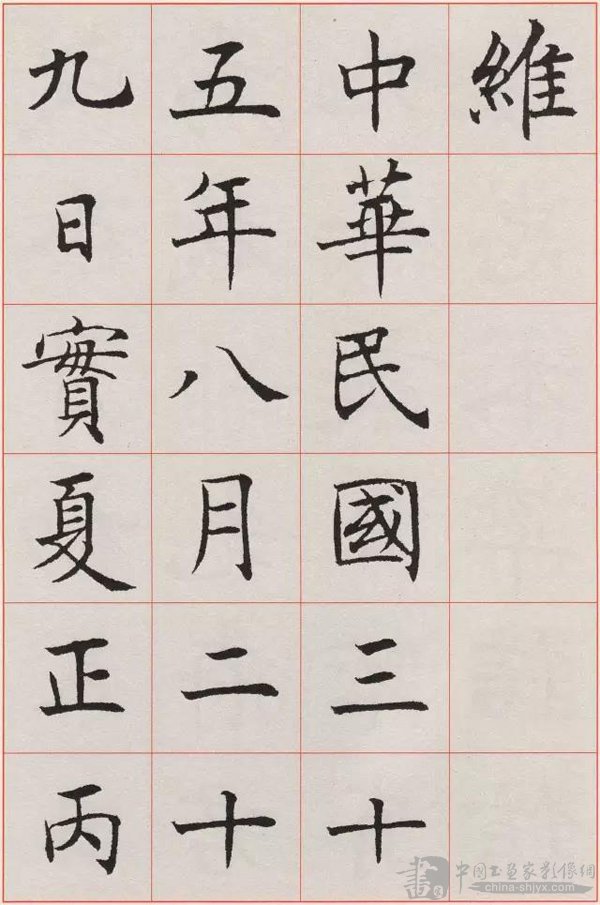 維
中華民國三十
五年八月二十
九日實夏正丙
書 中國書畫家影像網
china-shjyx.com